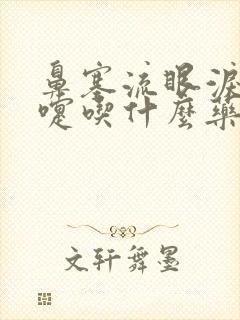 鼻塞流眼淚
嚏喫什麼藥
文轩舞墨